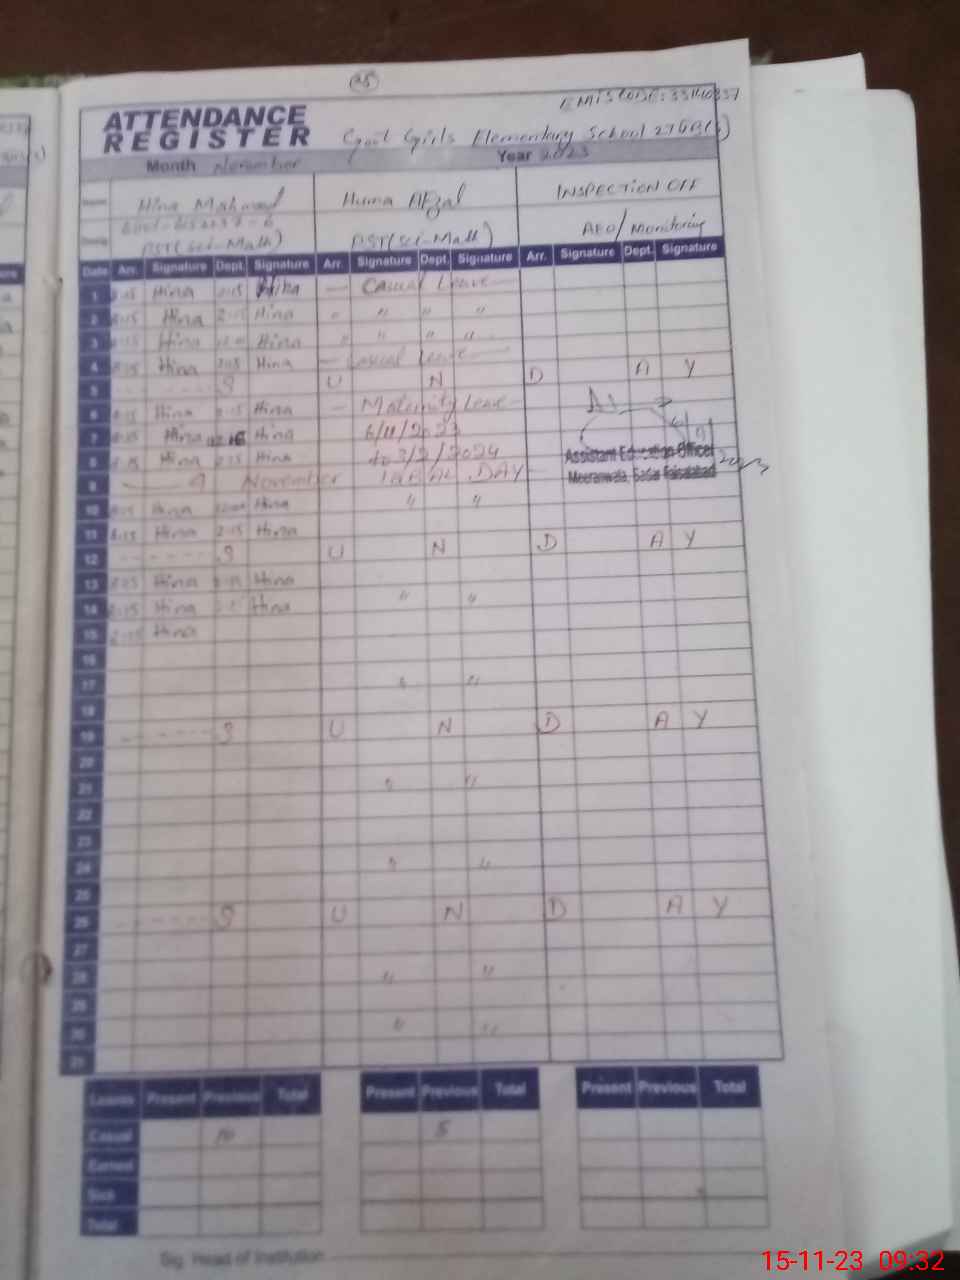 35
EMIS CODE: 33110337
ATTENDANCE
REGISTER
Govt Girls Elementary School 276 RB(s)
Month November
Year 2023
Hina Mahmood
Huma Afzal
INSPECTION OFF
EST(Sci-Math)
EST(Sci-Math)
AEO/Monitoring
Date Arr. Signature Dept. Signature Arr. Signature Dept. Signature Arr. Signature Dept. Signature
1 8:15 Hina 2:15 Hina — Casual Leave —
2 8:15 Hina 2:15 Hina " " " "
3 8:15 Hina Hina " " " "
4 8:15 Hina 2:15 Hina — Casual Leave —
5 - - - - - - S U N D A Y
6 8:15 Hina 2:15 Hina — Maternity Leave —
7 8:15 Hina Hina 6/11/2023
8 8:15 Hina 2:15 Hina to 3/2/2024
Assistant Education Officer
9 — 9 November IQBAL DAY —
Meeranwala, Sadar Faisalabad
10 8:15 Hina Hina " "
11 8:15 Hina 2:15 Hina
12 - - - - - - S U N D A Y
13 8:15 Hina 2:15 Hina
14 8:15 Hina Hina " "
15 8:15 Hina
16
17 " "
18
19 - - - - - - S U N D A Y
20
21 " "
22
23
24 " "
25
26 - - - - - - S U N D A Y
27
28 " "
29
30 " "
31
Leaves Present Previous Total Present Previous Total Present Previous Total
Casual 10 5
Earned
Sick
Total
Sig. Head of Institution
15-11-23 09:32